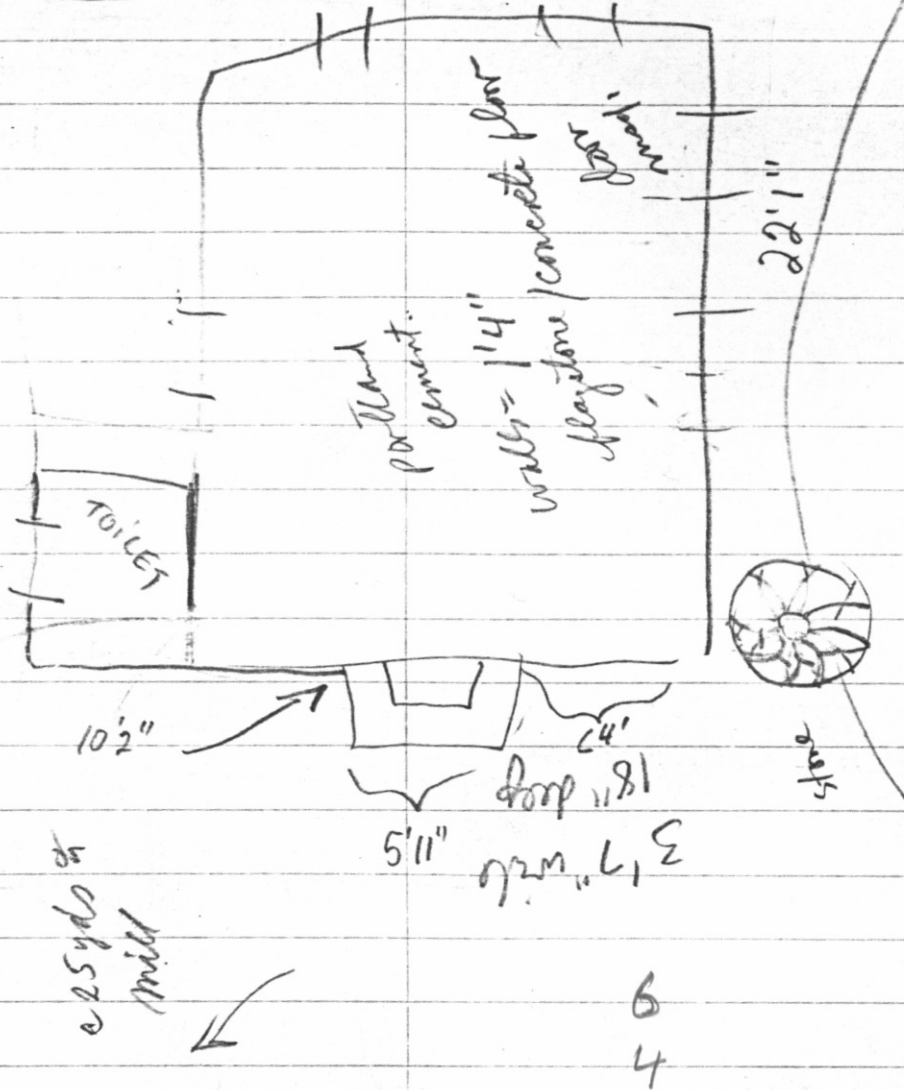 portland
cement.
walls = 1'4"
flagstone/concrete floor
22'1"
TOILET
10'2"
5'11"
c4'
18" deep
3'7" wide
stone
c 25 yds to
mill
6
4